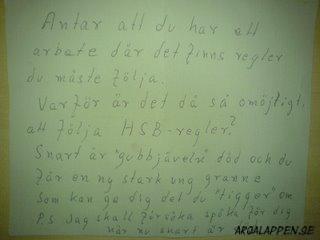 Antar att du har ett
arbete där det finns regler
du måste följa.
Varför är det då så omöjligt,
att följa HSB-regler?
Snart är "gubbjäveln" död och du
får en ny stark ung granne
som kan ge dig det du "tigger" om
P.S Jag skall försöka spöka för dig
när nu snart är
ARGALAPPEN.SE